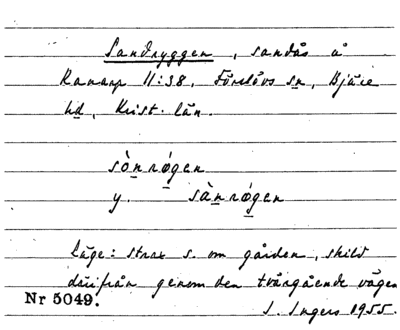 Sandryggen, sandås å
Ranarp 11:38, Förslövs sn, Bjäre
hd, Krist. län.
sònrǿgen
y. sànrǿgen
Läge: strax s. om gården, skild
därifrån genom den tvärgående vägen
Nr 5049.
I. Ingers 1955.